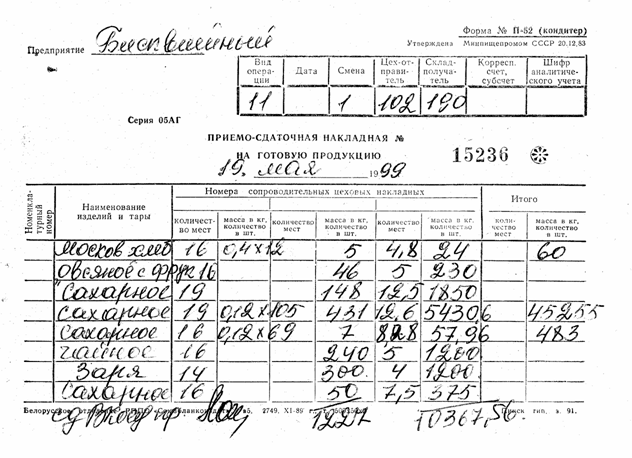 Форма № П-52 (кондитер)
Предприятие Бисквитный
Утверждена Минпищепромом СССР 20.12.83
Вид операции Дата Смена Цех-отправитель Склад-получатель Корресп. счет, субсчет Шифр аналитического учета
11 1 102 190
Серия 05АГ
ПРИЕМО-СДАТОЧНАЯ НАКЛАДНАЯ №
НА ГОТОВУЮ ПРОДУКЦИЮ 15236
19. мая 1999
Номенклатурный номер Наименование изделий и тары Номера сопроводительных цеховых накладных Итого
количество мест масса в кг, количество в шт. количество мест масса в кг, количество в шт. количество мест масса в кг, количество в шт. количество мест масса в кг, количество в шт.
Москов хлеб 16 0,4×12 5 4,8 24 60
овсяное с фрук 16 46 5 230
"Сахарное 19 148 12,5 1850
Сахарное 19 0,12×105 431 12,6 54306 45255
Сахарное 16 0,12×69 7 828 57,96 483
чайное 16 240 5 1200
Заря 14 300 4 1200
Сахарное 16 50 7,5 375
Белорусское 2749, XI-89 тип. з. 91.
1227 10367,56